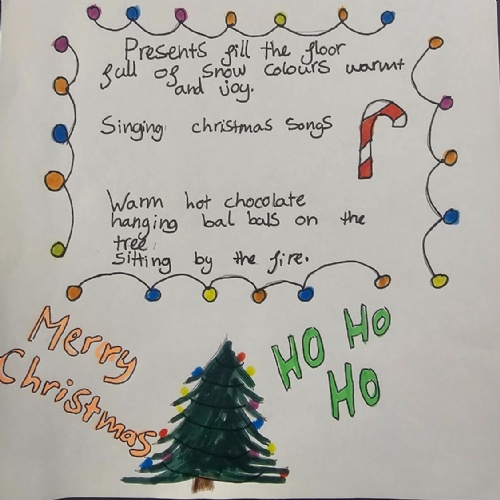 Presents fill the floor
full of snow colours warmt
and joy.
Singing christmas songs
Warm hot chocolate
hanging bal bals on the
tree.
sitting by the fire.
Merry
Christmas
HO HO
HO